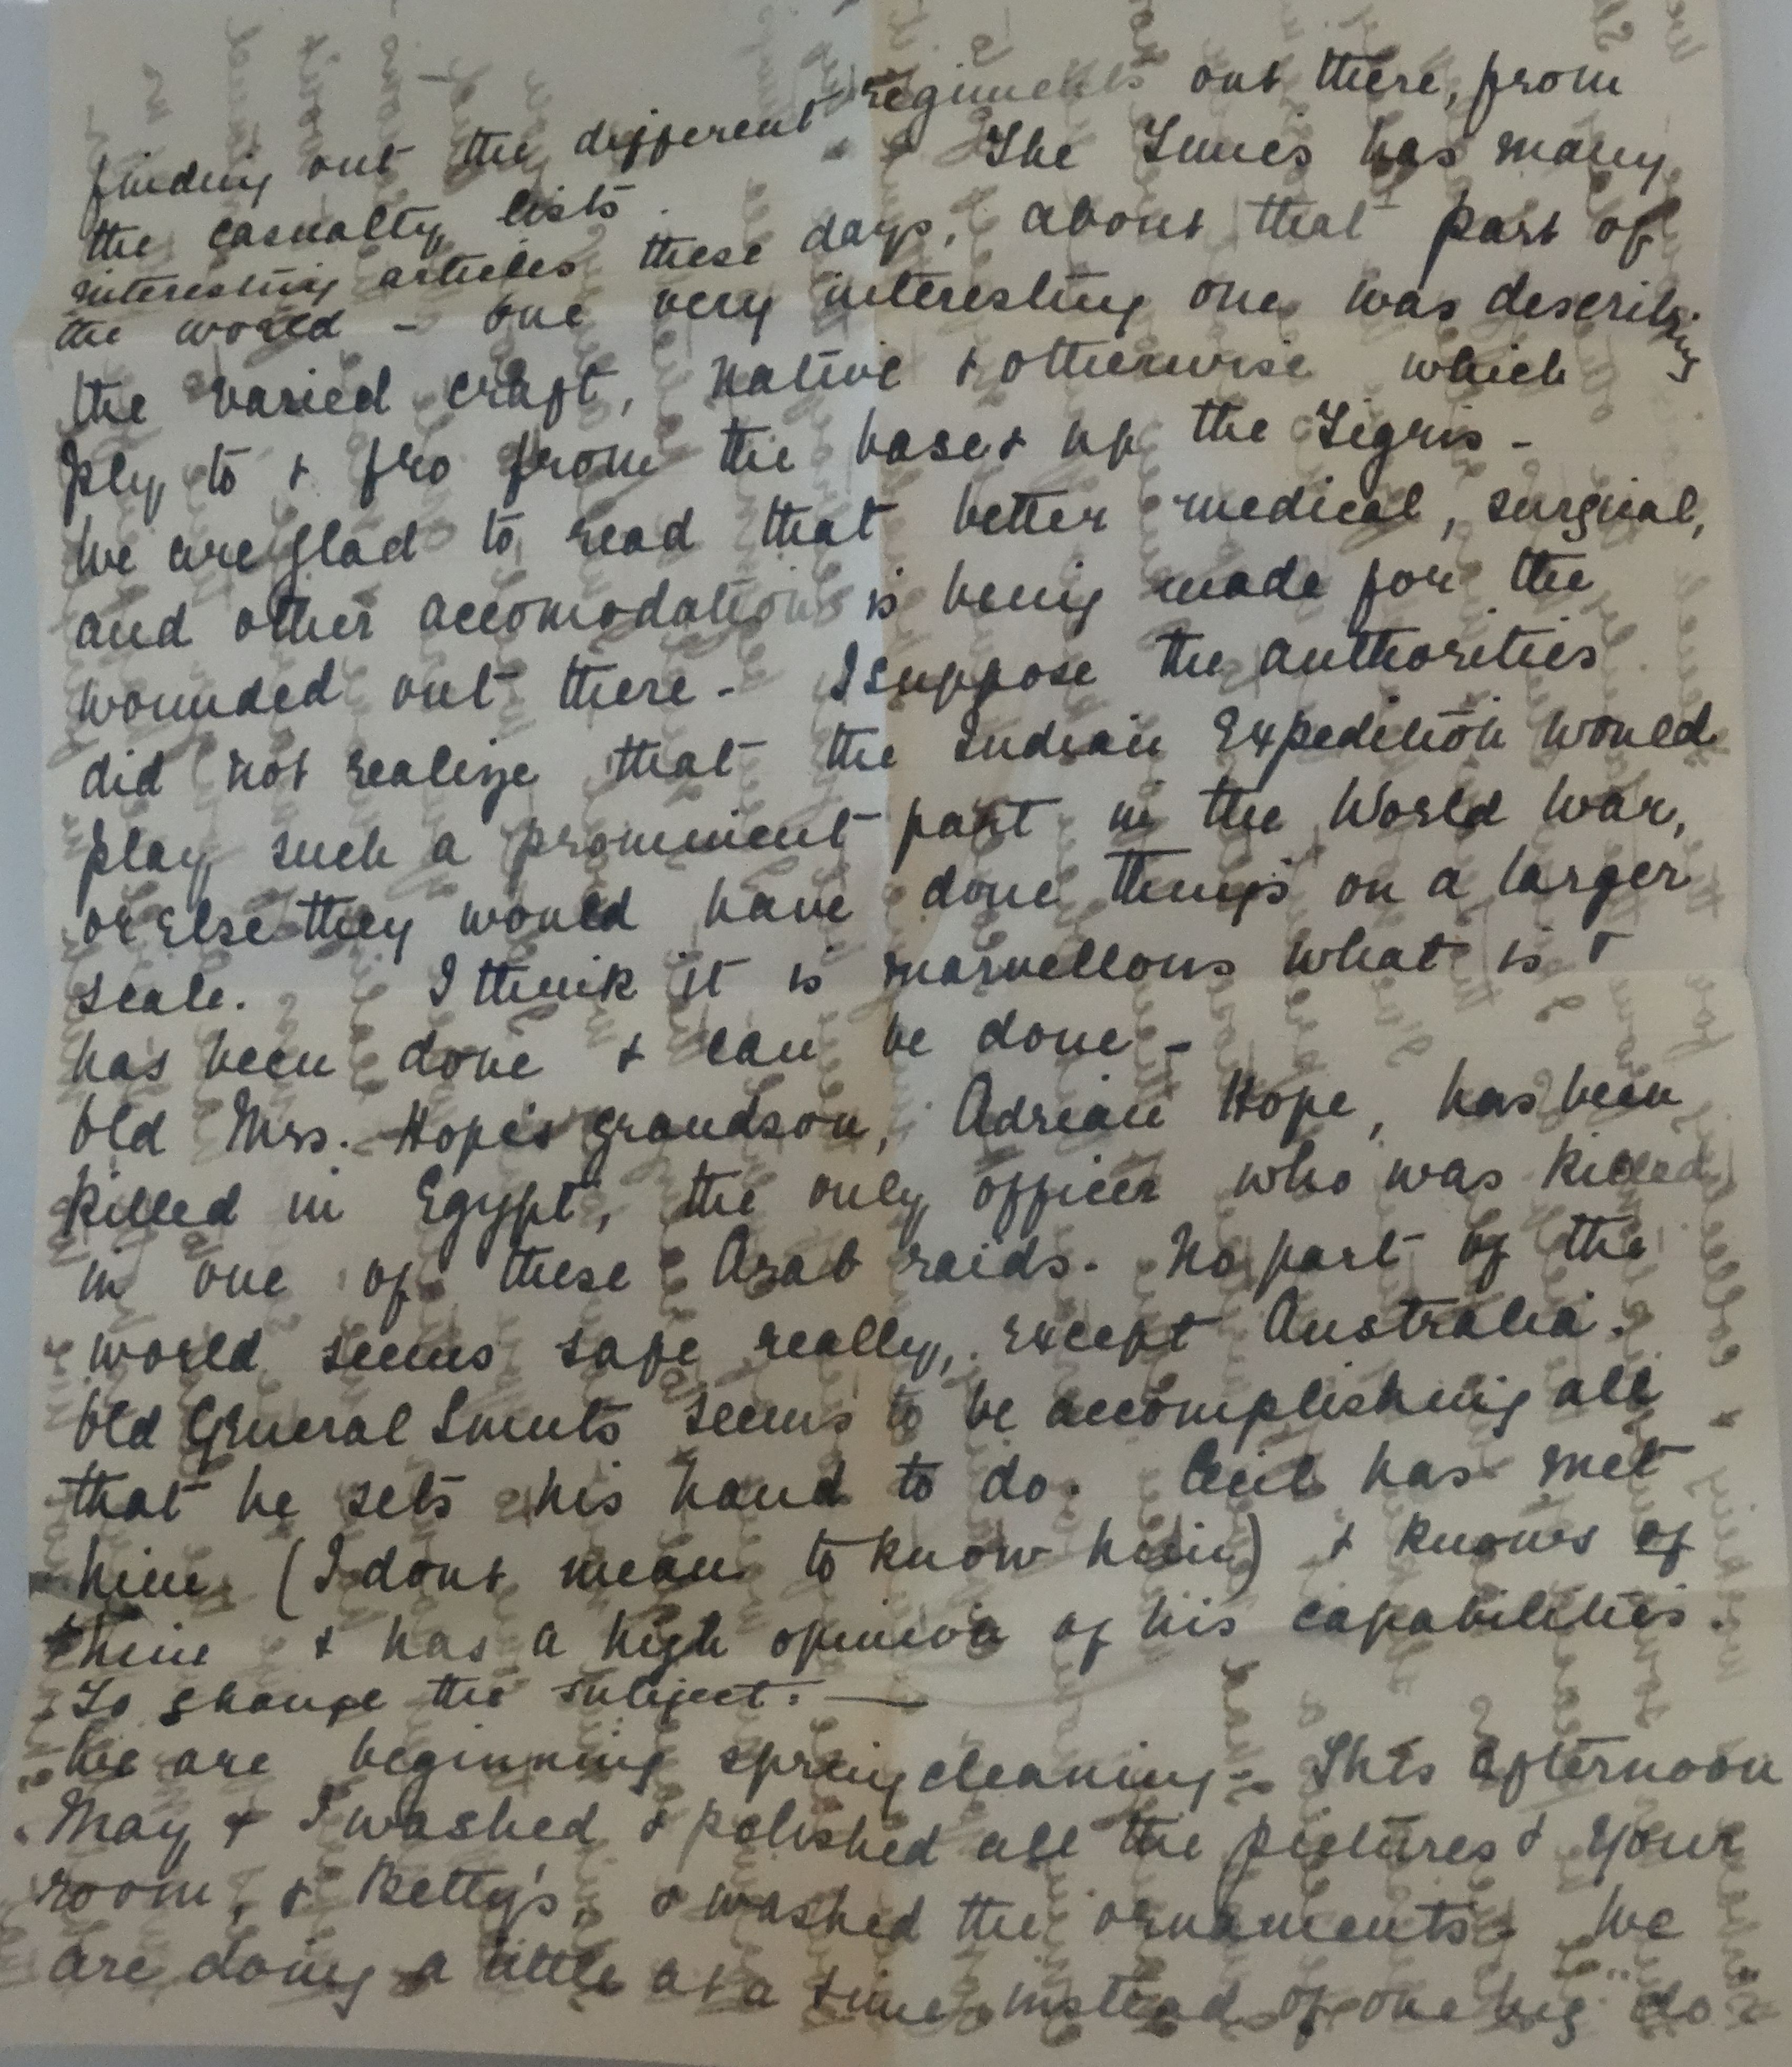 finding out the different regiments out there, from
the casualty lists. The Times has many
interesting articles these days, about that part of
the world - one very interesting one was describing
the varied craft, native & otherwise which
ply to & fro from the base & up the Tigris -
We are glad to read that better medical, surgical,
and other accomodation is being made for the
wounded out there - I suppose the authorities
did not realize that the Indian Expedition would
play such a prominent part in the World War,
or else they would have done things on a larger
scale. I think it is marvellous what is &
has been done & can be done -
Old Mrs. Hope's grandson, Adrian Hope, has been
killed in Egypt, the only officer who was killed
in one of these Arab raids. No part of the
world seems safe really, except Australia.
Old General Smuts seems to be accomplishing all
that he sets his hand to do. Cecil has met
him (I dont mean to know him) & knows of
him & has a high opinion of his capabilities.
To change the subject. —
We are beginning spring cleaning - This afternoon
May & I washed & polished all the pictures & your
room, & Betty's, & washed the ornaments. We
are doing a little at a time instead of one big do